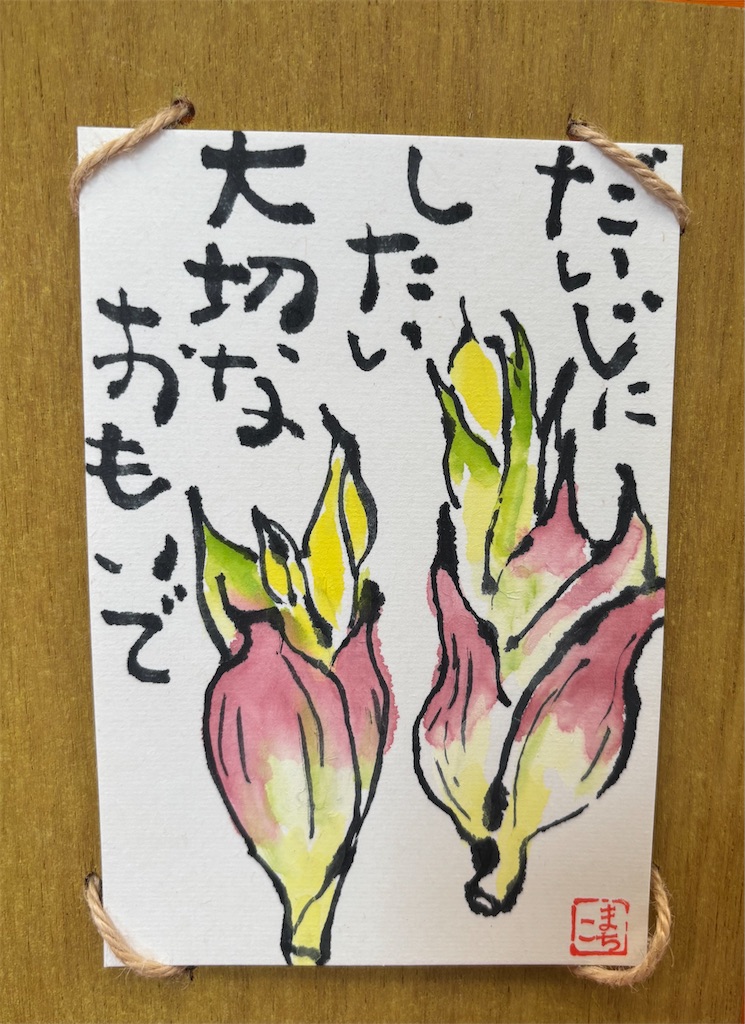 だいじに
したい
大切な
おもいで
まち
こ